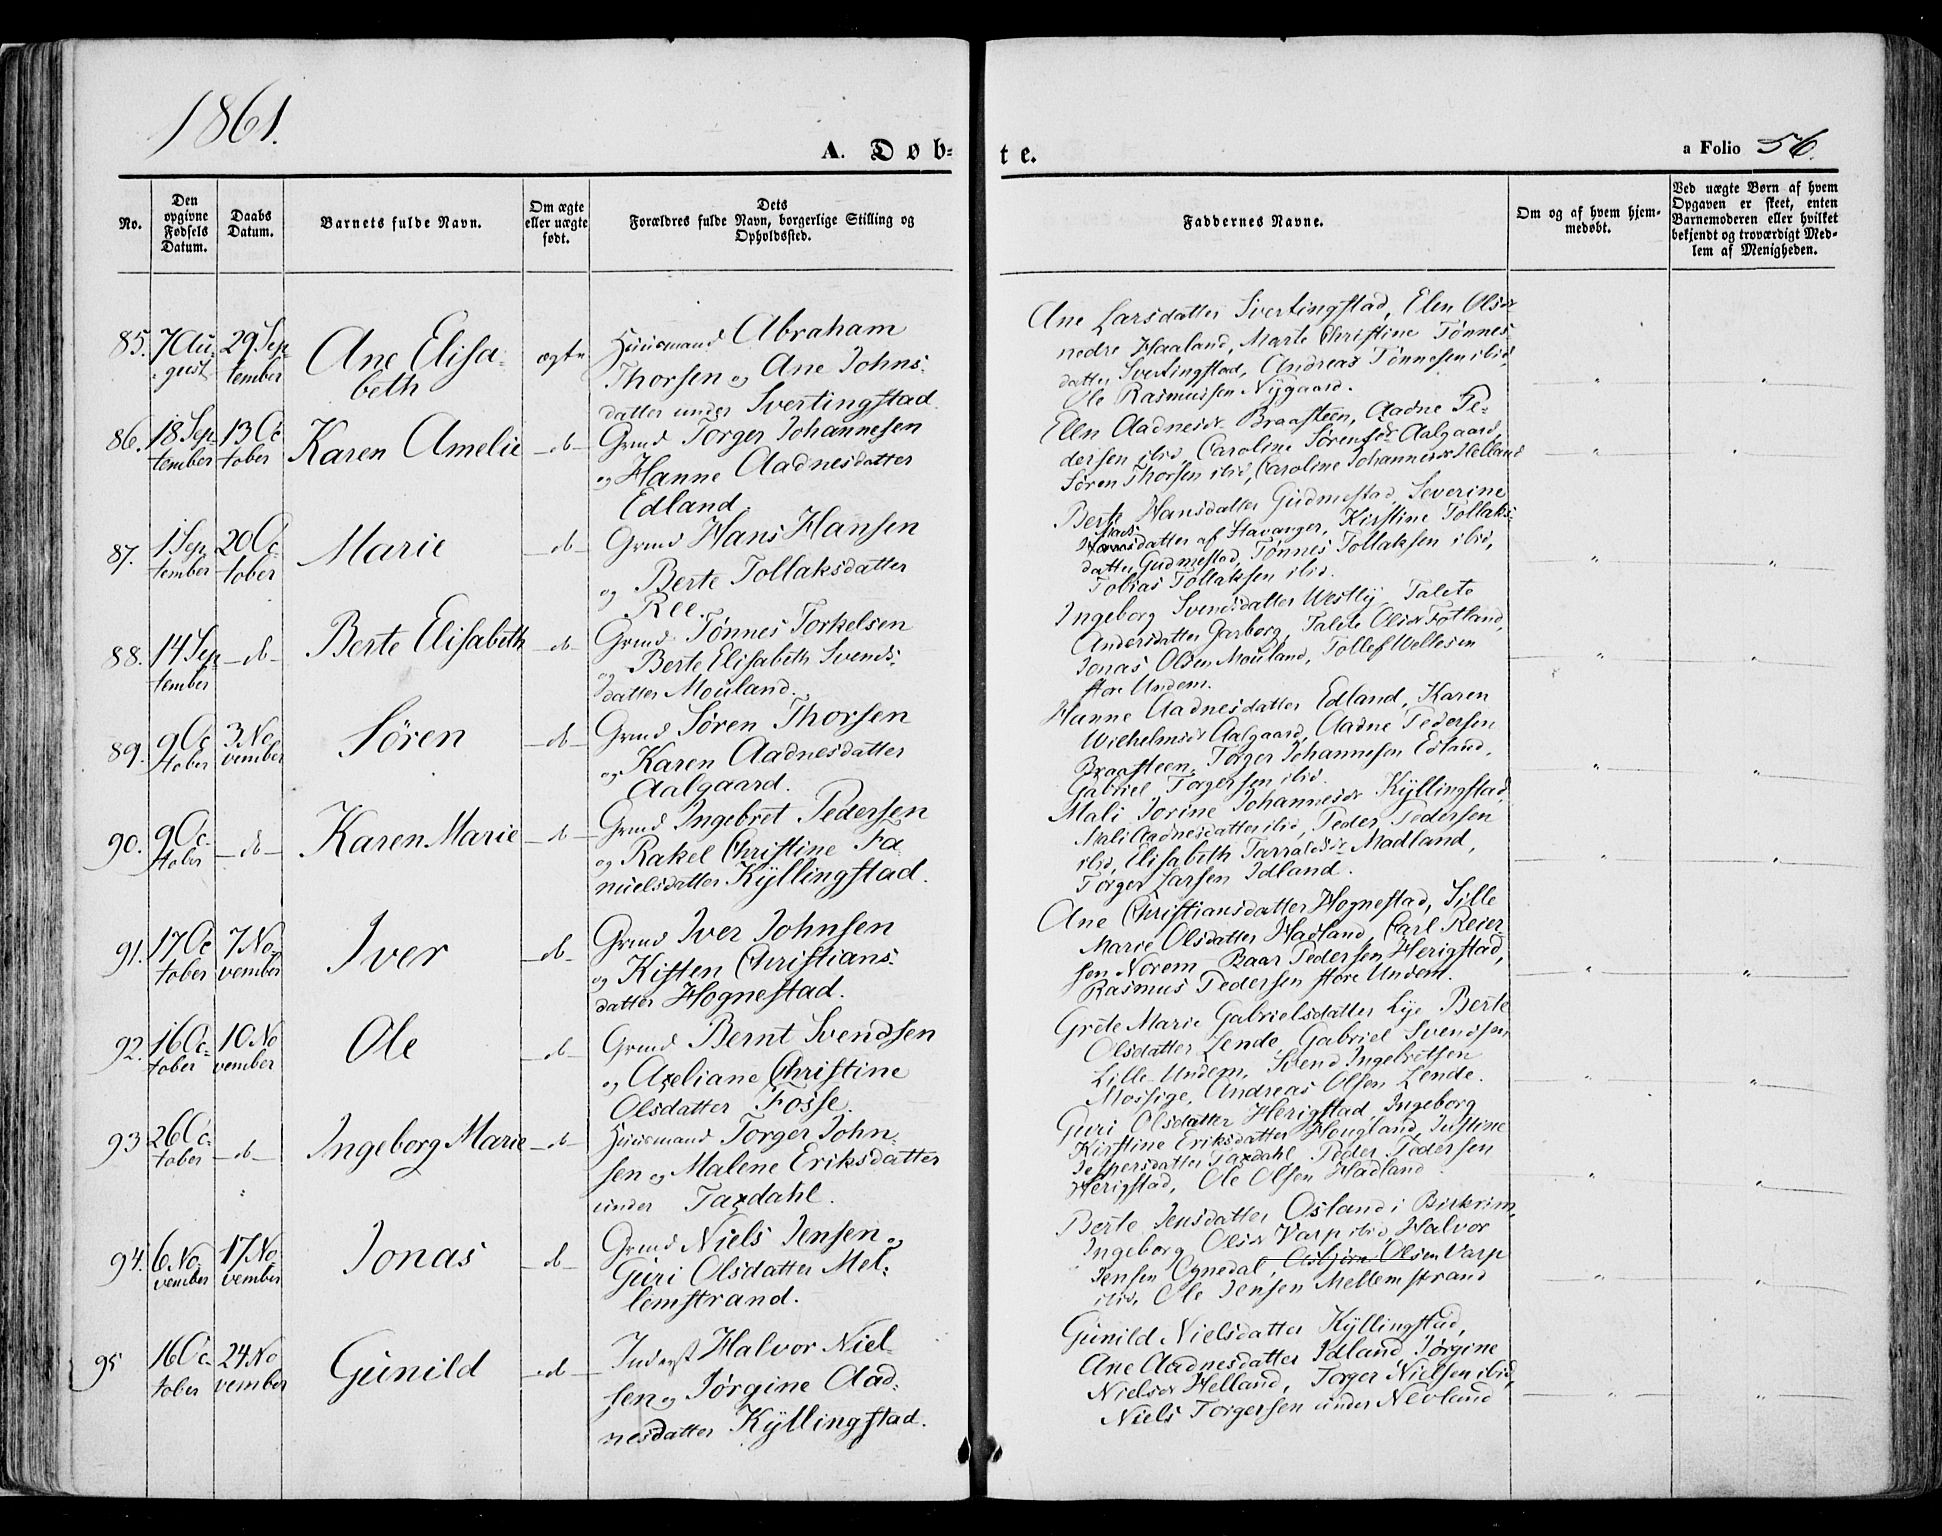 1861.
A. Døb-
te.
a Folio 56.
No.
Den
opgivne
Fødsels
Datum.
Daabs
Datum.
Barnets fulde Navn.
Om ægte
eller uægte
født.
Dets
Forældres fulde Navn, borgerlige Stilling og
Opholdssted.
Faddernes Navne.
Om og af hvem hjem-
medøbt.
Ved uægte Børn af hvem
Opgaven er skeet, enten
Barnemoderen eller hvilket
bekjendt og troværdigt Med-
lem af Menigheden.
85. 7 Au-
gust
29 Sep-
tember
Ane Elisa-
beth
ægte
Huusmand Abraham
Thorsen og Ane Johns-
datter under Svertingstad
Ane Larsdatter Svertingstad, Elen Olsdr
nedre Haaland, Marte Christine Tønnes-
datter Svertingstad, Andreas Tønnesen ibid,
Ole Rasmussen Nygaard.
86. 18 Sep-
tember
13 Oc-
tober
Karen Amelie
-do-
Grmd Torger Johannesen
og Hanne Aadnesdatter
Edland
Elen Aadnesdr Braasteen, Aadne Pe-
dersen ibid, Caroline Sørensdr Aalgaard,
Søren Thorsen ibid, Caroline Johannesdr Helland
87. 1 Sep-
tember
20 Oc-
tober
Marie
-do-
Grmd Hans Hansen
og Berte Tollaksdatter
Ree.
Berte Hansdatter Gudmestad, Severine
datter af Stavanger, Kirstine Tollaks-
datter Gudmestad, Tønnes Tollaksen ibid,
Tobias Tollaksen ibid.
88. 14 Sep-
tember
-do-
Berte Elisabeth
-do-
Grmd Tønnes Torkelsen
og Berte Elisabeth Svends-
datter Mouland.
Ingeborg Svendsdatter Westly, Talete
Andersdatter Garborg, Talete Olsdr Fotland,
Jonas Olsen Mouland, Tollef Wellesen
store Undem.
89. 9 Oc-
tober
3 No-
vember
Søren
-do-
Grmd Søren Thorsen
og Karen Aadnesdatter
Aalgaard.
Hanne Aadnesdatter Edland, Karen
Wilhelmsdr Aalgaard, Aadne Pedersen
Braasteen, Torger Johannesen Edland,
Gabriel Torgersen ibid.
90. 9 Oc-
tober
-do-
Karen Marie
-do-
Grmd Ingebret Pedersen
og Rakel Christine Fa-
nuelsdatter Kyllingstad.
Mali Jorine Johannesdr Kyllingstad,
Mali Aadnesdatter ibid, Peder Pedersen
ibid, Elisabeth Tarraldsdr Madland,
Torger Larsen Idland.
91. 17 Oc-
tober
7 No-
vember
Iver
-do-
Grmd Iver Johnsen
og Kisten Christians-
datter Hognestad.
Ane Christiansdatter Hognestad, Sille
Marie Olsdatter Hadland, Carl Reier-
sen Norem, Baar Pedersen Herigstad,
Rasmus Pedersen store Undem.
92. 16 Oc-
tober
10 No-
vember
Ole
-do-
Grmd Bernt Svendsen
og Axeliane Christine
Olsdatter Fosse.
Grete Marie Gabrielsdatter Lye, Berte
Olsdatter Lende, Gabriel Svendsen
Lille Undem, Svend Ingebretsen
Mossige, Andreas Olsen Lende.
93 26 Oc-
tober
-do-
Ingeborg Marie
-do-
Huusmand Torger John-
sen og Malene Eriksdatter
under Taxdahl.
Guri Olsdatter Herigstad, Ingeborg
Kirstine Eriksdatter Hougland, Justine
Jespersdatter Taxdahl, Peder Pedersen
Herigstad, Ole Olsen Hadland
94. 6 No-
vember
17 No-
vember
Jonas
-do-
Grmd Niels Jensen og
Guri Olsdatter Mel-
lemstrand.
Berte Jensdatter Osland i Birkrim,
Ingeborg Olsdr Varp ibid, Halvor
Jensen Ognedal, Asbjørn Olsen Varp
ibid, Ole Jensen Mellemstrand
95 16 Oc-
tober
24 No-
vember
Gunild
-do-
Inderst Halvor Niel-
sen og Jørgine Aad-
nesdatter Kyllingstad.
Gunild Nielsdatter Kyllingstad,
Ane Aadnesdatter Idland, Jørgine
Nielsdr Helland, Torger Nielsen ibid,
Niels Torgersen under Nevland